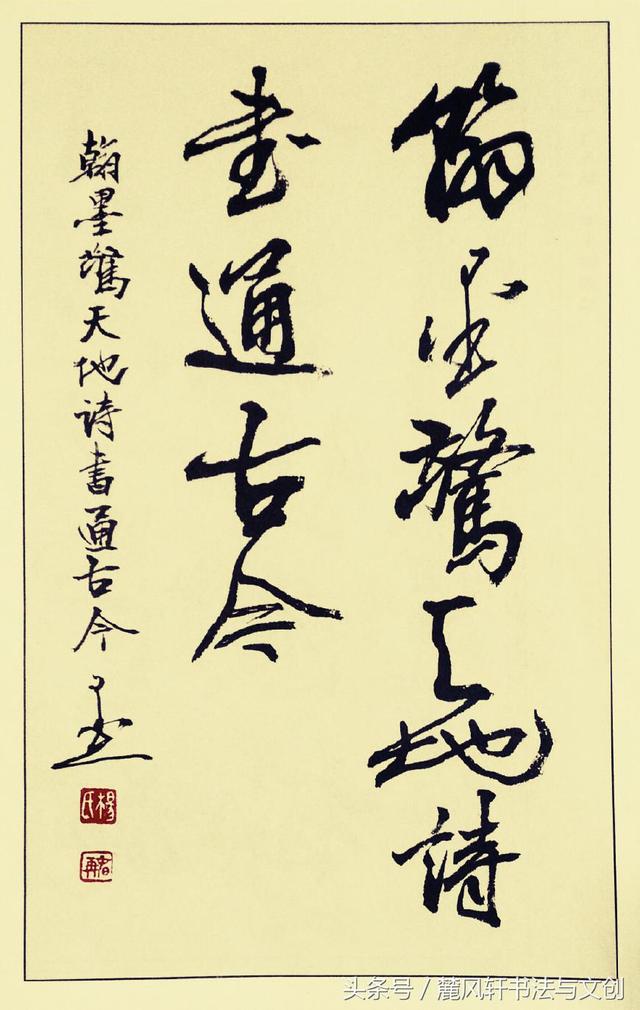 翰墨驚天地詩
書通古今
翰墨驚天地詩書通古今
楊氏
头条号 / 麓风轩书法与文创